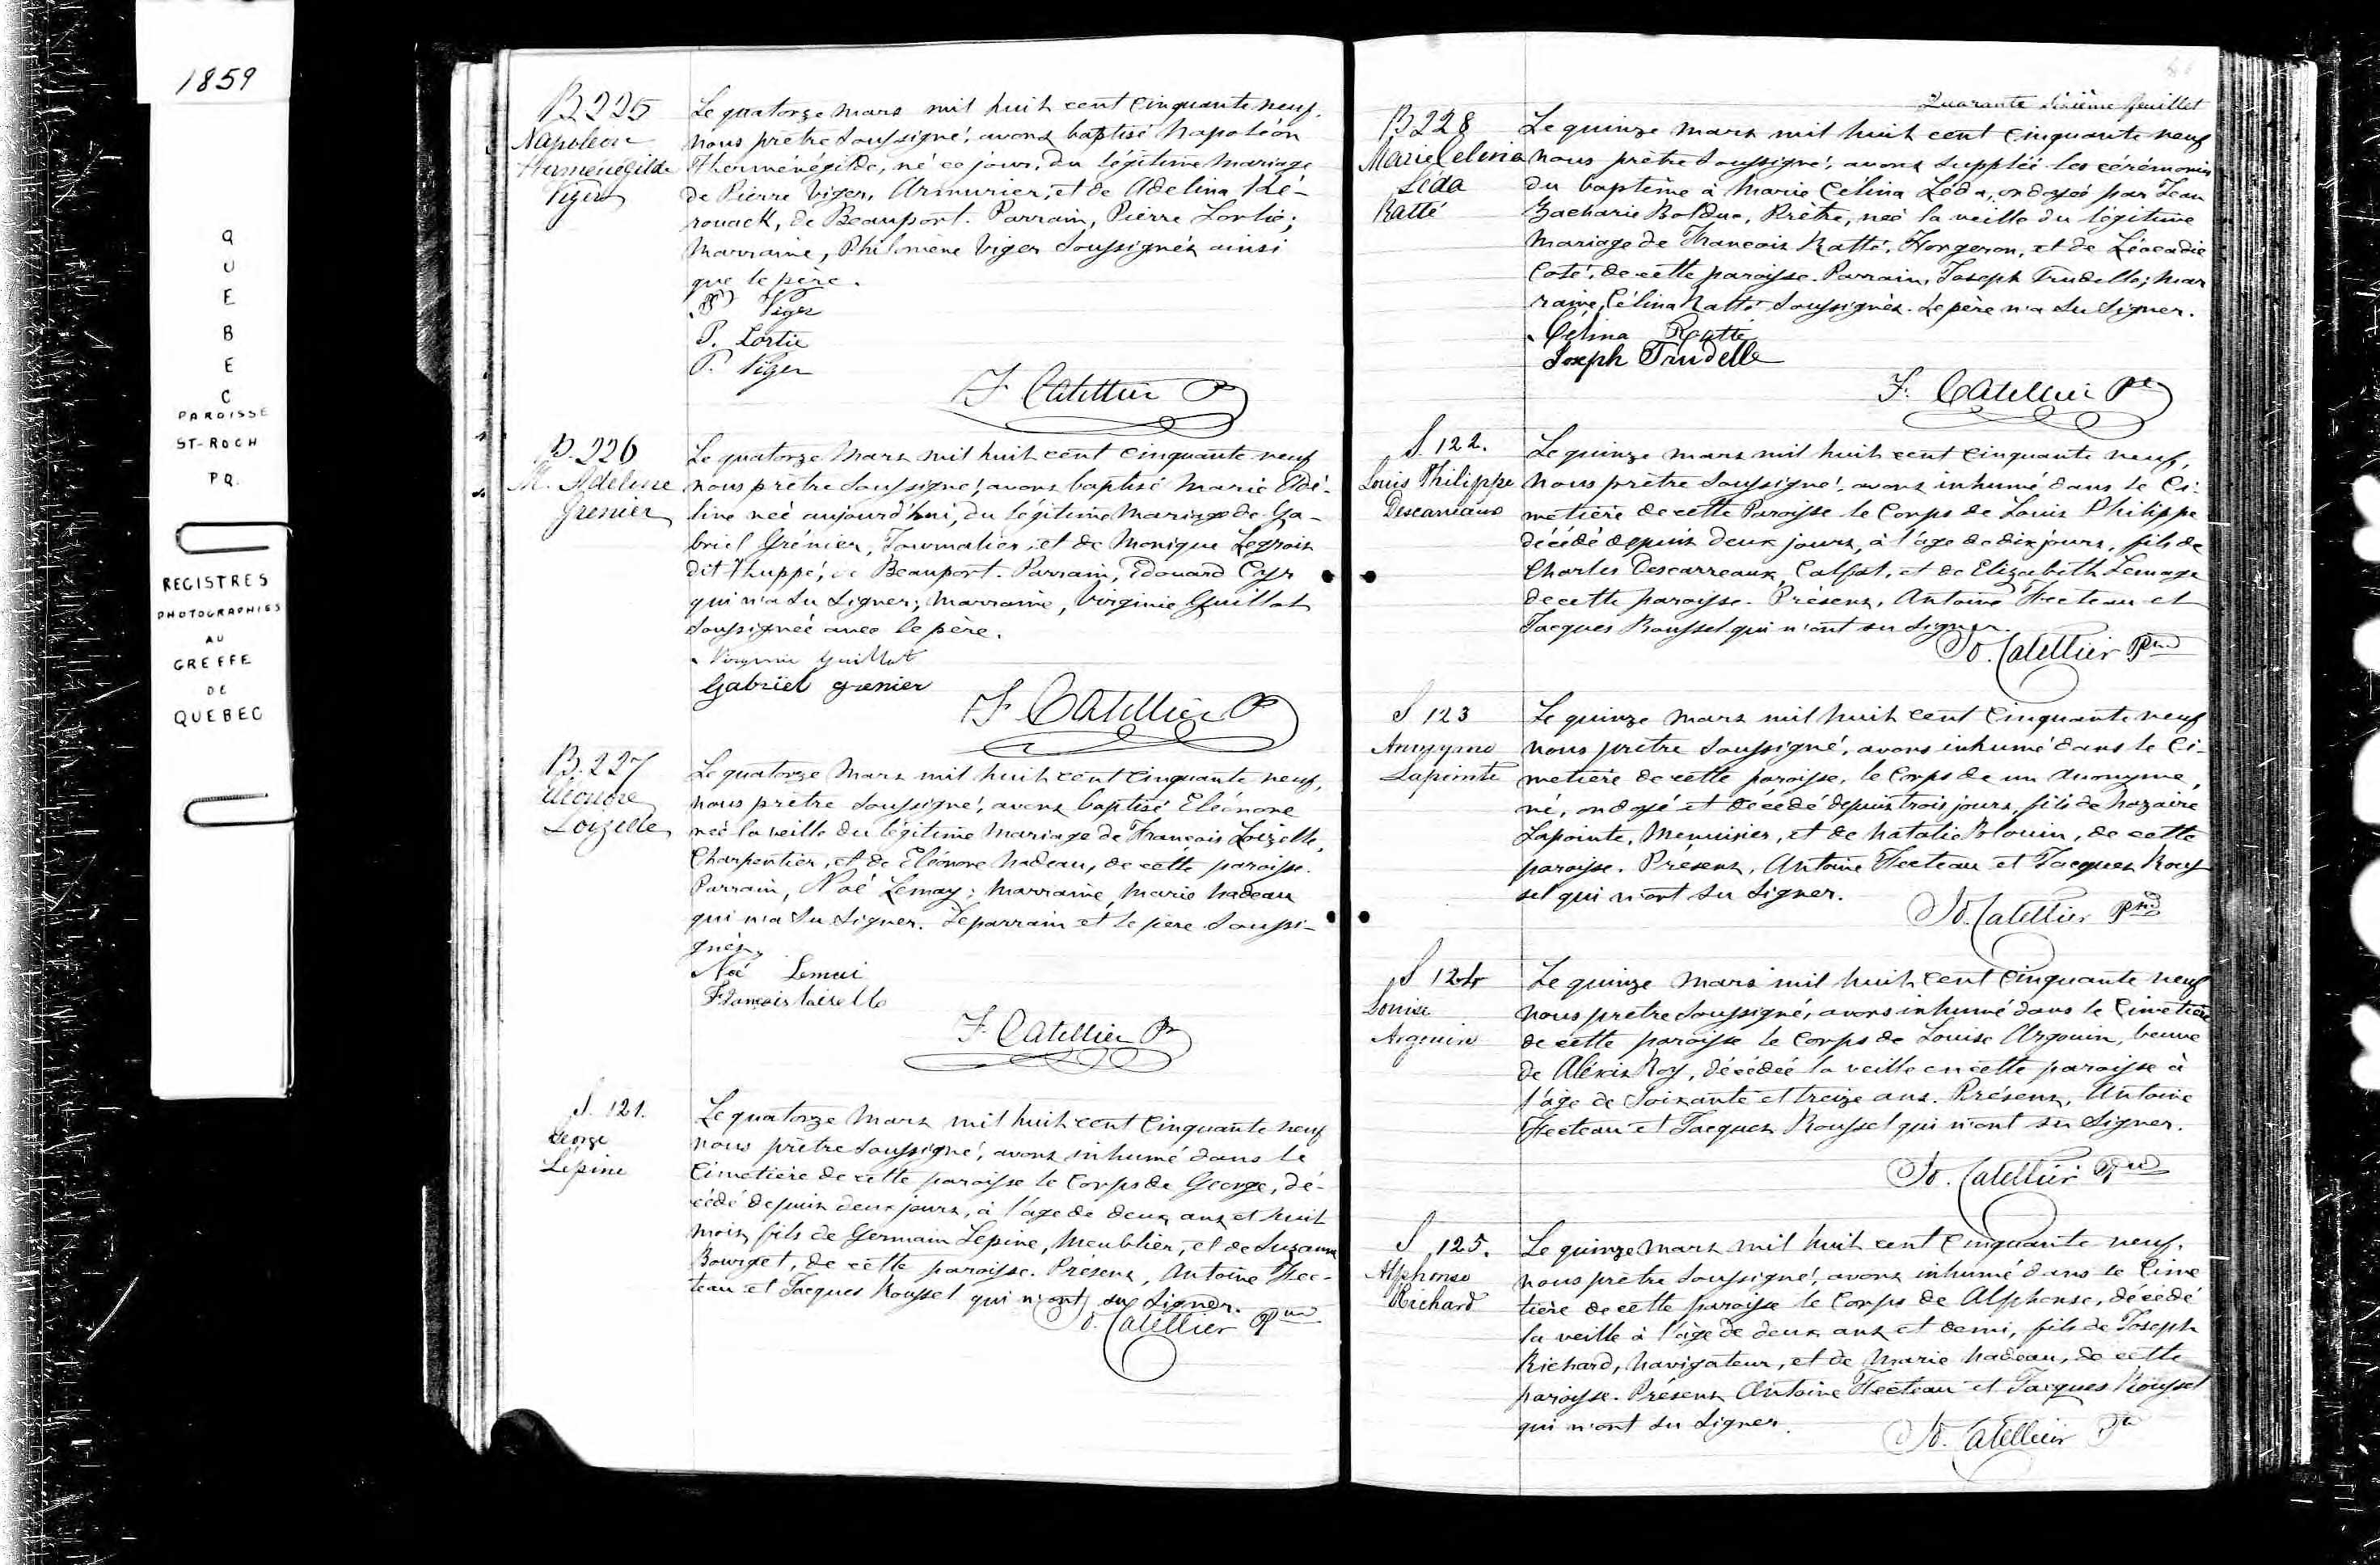 1859
QUEBEC
PAROISSE
ST-ROCH
PQ.
REGISTRES
PHOTOGRAPHIES
AU
GREFFE
DE
QUEBEC
B225
Napoléon
Herménégilde
Viger
Le quatorze mars mil huit cent cinquante neuf,
nous prêtre soussigné, avons baptisé Napoléon
Herménégilde, né ce jour, du légitime mariage
de Pierre Viger, Armurier, et de Adelina Ké-
rouack, de Beauport. Parrain, Pierre Lortie;
Marraine, Philomène Viger soussignés ainsi
que le père.
P. Viger
P. Lortie
P. Viger
F. Catellier P
B.226
M. Adeline
Grenier
Le quatorze Mars mil huit cent cinquante neuf
nous prêtre soussigné, avons baptisé Marie Adé-
line née aujourd'hui, du légitime Mariage de Ga-
briel Grénier, Journalier, et de Monique Legrois
dit Huppé, de Beauport. Parrain, Edouard Cyr
qui n'a su signer; Marraine, Virginie Guillot
soussignée avec le père.
Virginie Guillot
Gabriel Grenier
F. Catellier P
B.227
Eléonore
Loizelle
Le quatorze Mars mil huit cent cinquante neuf,
nous prêtre soussigné, avons baptisé Eléonore
née la veille du légitime Mariage de François Loizelle,
Charpentier, et de Eléonore Nadeau, de cette paroisse.
Parrain, Noé Lemay; Marraine, Marie Nadeau
qui n'a su signer. Le parrain et le père soussi-
gnés.
Noé Lemai
François loiselle
F. Catellier P
S. 121.
George
Lépine
Le quatorze Mars mil huit cent cinquante neuf
nous prêtre soussigné, avons inhumé dans le
Cimetière de cette paroisse le Corps de George, dé-
cédé depuis deux jours, à l'âge de deux ans et huit
mois, fils de Germain Lepine, Meublier, et de Suzanne
Bourget, de cette paroisse. Présens, Antoine Fec-
teau et Jacques Roussel qui n'ont su signer.
Catellier
Quarante sixième feuillet
B228
Marie Celina
Léda
Ratté
Le quinze mars mil huit cent cinquante neuf
nous prêtre soussigné, avons supplée les cérémonies
du baptême à Marie Célina Léda, ondoyée par Jean
Zacharie Bolduc, Prêtre, née la veille du légitime
Mariage de Francois Ratté, Forgeron, et de Léocadie
Coté, de cette paroisse. Parrain, Joseph Trudelle; Mar
raine, Célina Ratté soussignés. Le père n'a su signer.
Célina Ratté
Joseph Trudelle
F. Catellier Pt
S. 122.
Louis Philippe
Descarreaux
Le quinze mars mil huit cent cinquante neuf,
nous prêtre soussigné, avons inhumé dans le Ci-
metière de cette Paroisse le Corps de Louis Philippe
décédé depuis deux jours, à l'âge de dix jours, fils de
Charles Descarreaux, Calfat, et de Elizabeth Lemage
de cette paroisse. Présens, Antoine Fecteau et
Jacques Roussel qui n'ont su signer.
Catellier
S 123
Anonyme
Lapointe
Le quinze Mars mil huit cent cinquante neuf
nous prêtre soussigné, avons inhumé dans le Ci-
metière de cette paroisse, le Corps de un Anonyme,
né, ondoyé et décédé depuis trois jours, fils de Nazaire
Lapointe, Menuisier, et de Natalie Blouin, de cette
paroisse. Présens, Antoine Fecteau et Jacques Rous
sel qui n'ont su signer.
Catellier
S 124
Louise
Argouin
Le quinze Mars mil huit cent cinquante neuf
nous prêtre soussigné, avons inhumé dans le Cimetière
de cette paroisse le Corps de Louise Argouin, veuve
de Aléxis Roy, décédée la veille en cette paroisse à
l'âge de Soixante et treize ans. Présens, Antoine
Fecteau et Jacques Roussel qui n'ont su signer.
Catellier
S 125.
Alphonse
Richard
Le quinze Mars mil huit cent cinquante neuf.
nous prêtre soussigné, avons inhumé dans le Cime
tière de cette paroisse le Corps de Alphonse, décédé
la veille à l'âge de deux ans et demi, fils de Joseph
Richard, Navigateur, et de Marie Nadeau, de cette
paroisse. Présens Antoine Fecteau et Jacques Roussel
qui n'ont su signer.
Catellier